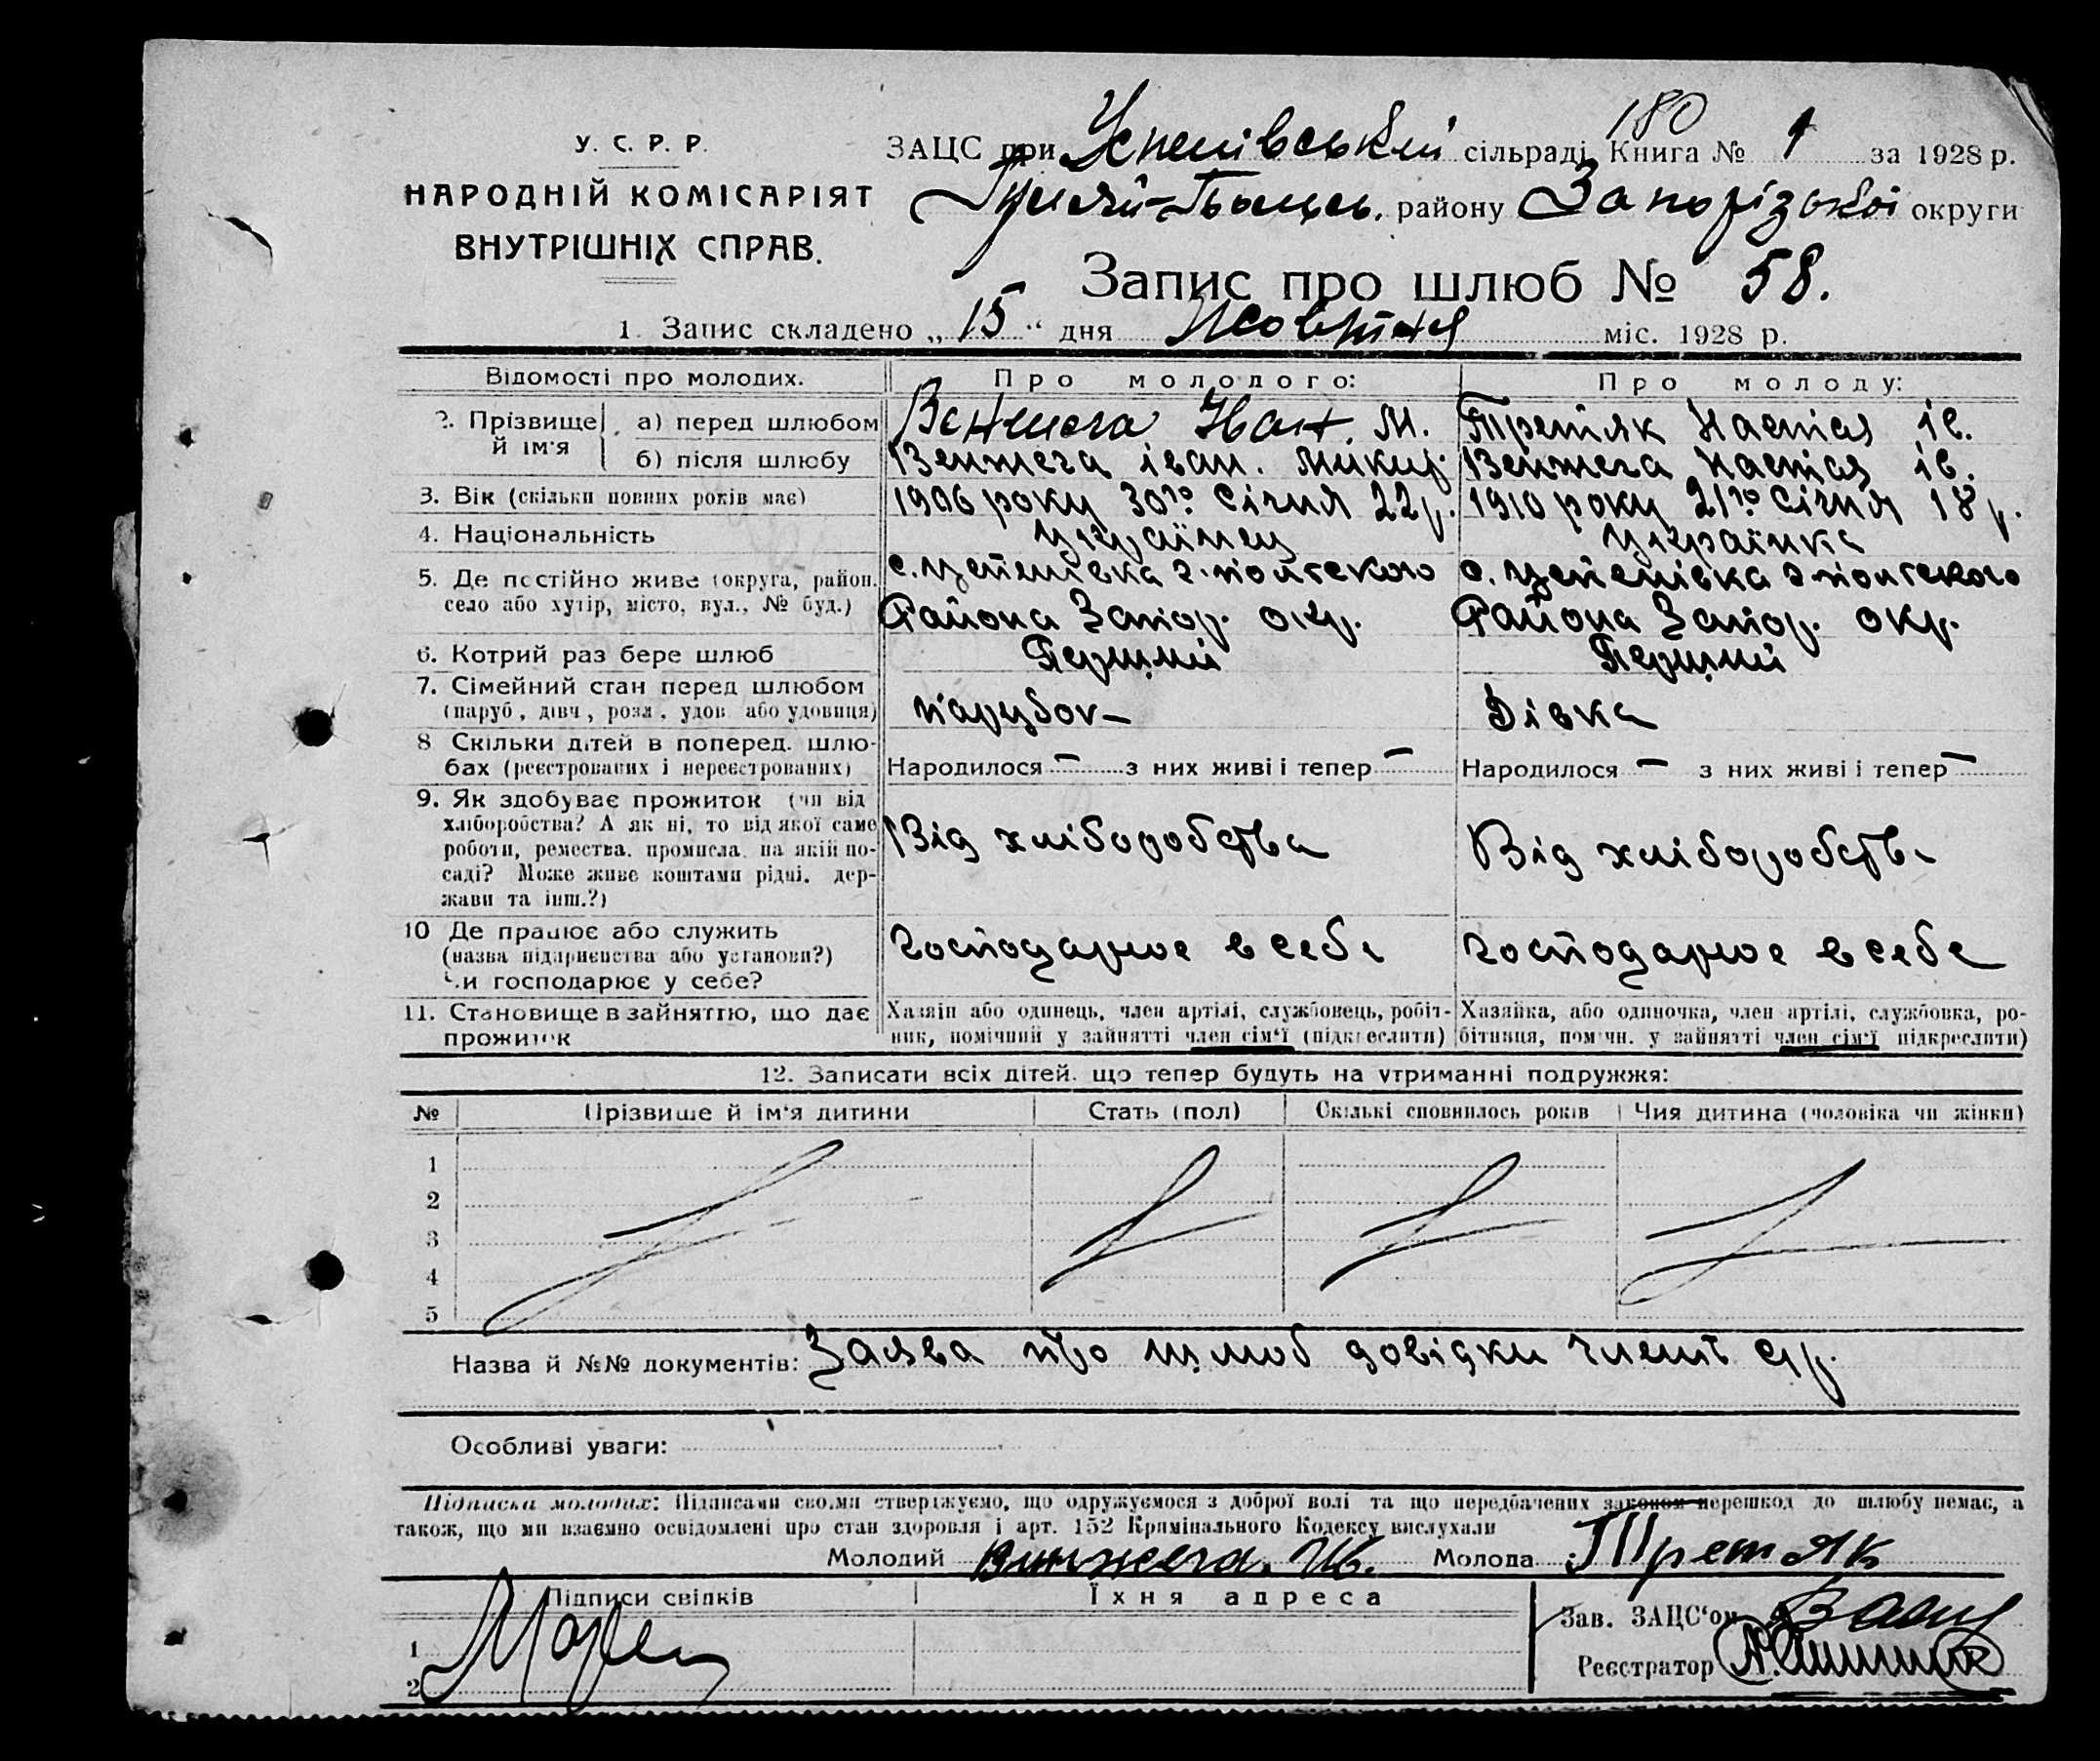 180
У. С. Р. Р.
НАРОДНІЙ КОМІСАРІЯТ
ВНУТРІШНІХ СПРАВ.
ЗАЦС при Успенівській сільраді Книга № 1 за 1928 р.
району Запорізької округи
Запис про шлюб № 58.
1. Запис складено „ 15 “ дня Жовтня міс. 1928 р.
Відомості про молодих. Про молодого: Про молоду:
2. Прізвище й ім'я а) перед шлюбом Венжега Иван. М. Третяк Настя ів.
б) після шлюбу Венжега іван. Венжега Настя ів.
3. Вік (скільки повних років має) 1906 року 30го Січня 22 р. 1910 року 21го Січня 18 р.
4. Національність українец українка
5. Де постійно живе (округа, район, с. с.
село або хутір, місто, вул., № буд.) Района Запор. окр. Района Запор. окр.
6. Котрий раз бере шлюб Перший Перший
7. Сімейний стан перед шлюбом
(паруб., дівч., розл., удов. або удовиця) парубок Дівка
8 Скільки дітей в поперед. шлю-
бах (реєстрованих і нереєстрованих) Народилося — з них живі і тепер — Народилося — з них живі і тепер —
9. Як здобуває прожиток (чи від
хліборобства? А як ні, то від якої саме
роботи, ремества, промисла, на якій по- Від хліборобства Від хліборобства
саді? Може живе коштами рідні, дер-
жави та інш.?)
10 Де працює або служить
(назва підприємства або установи?) господарює в себе господарює в себе
Чи господарює у себе?
11. Становище в зайняттю, що дає Хазяїн або одинець, член артілі, службовець, робіт- Хазяйка, або одиночка, член артілі, службовка, ро-
прожиток ник, помічний у зайнятті член сім'ї (підкреслити) бітниця, помічн. у зайнятті член сім'ї підкреслити)
12. Записати всіх дітей, що тепер будуть на утриманні подружжя:
№ Прізвище й ім'я дитини Стать (пол) Скількі сповнилось років Чия дитина (чоловіка чи жінки)
1
2
3
4
5
Назва й №№ документів: Заява про шлюб довідки
Особливі уваги:
Підписка молодих: Підписами своїми стверджуємо, що одружуємося з доброї волі та що передбачених законом перешкод до шлюбу немає, а
також, що ми взаємно освідомлені про стан здоровля і арт. 152 Кримінального Кодексу вислухали
Молодий Винжега. Ив. Молода Третяк
Підписи свідків Їхня адреса Зав. ЗАЦС'ом
1
2 Реєстратор